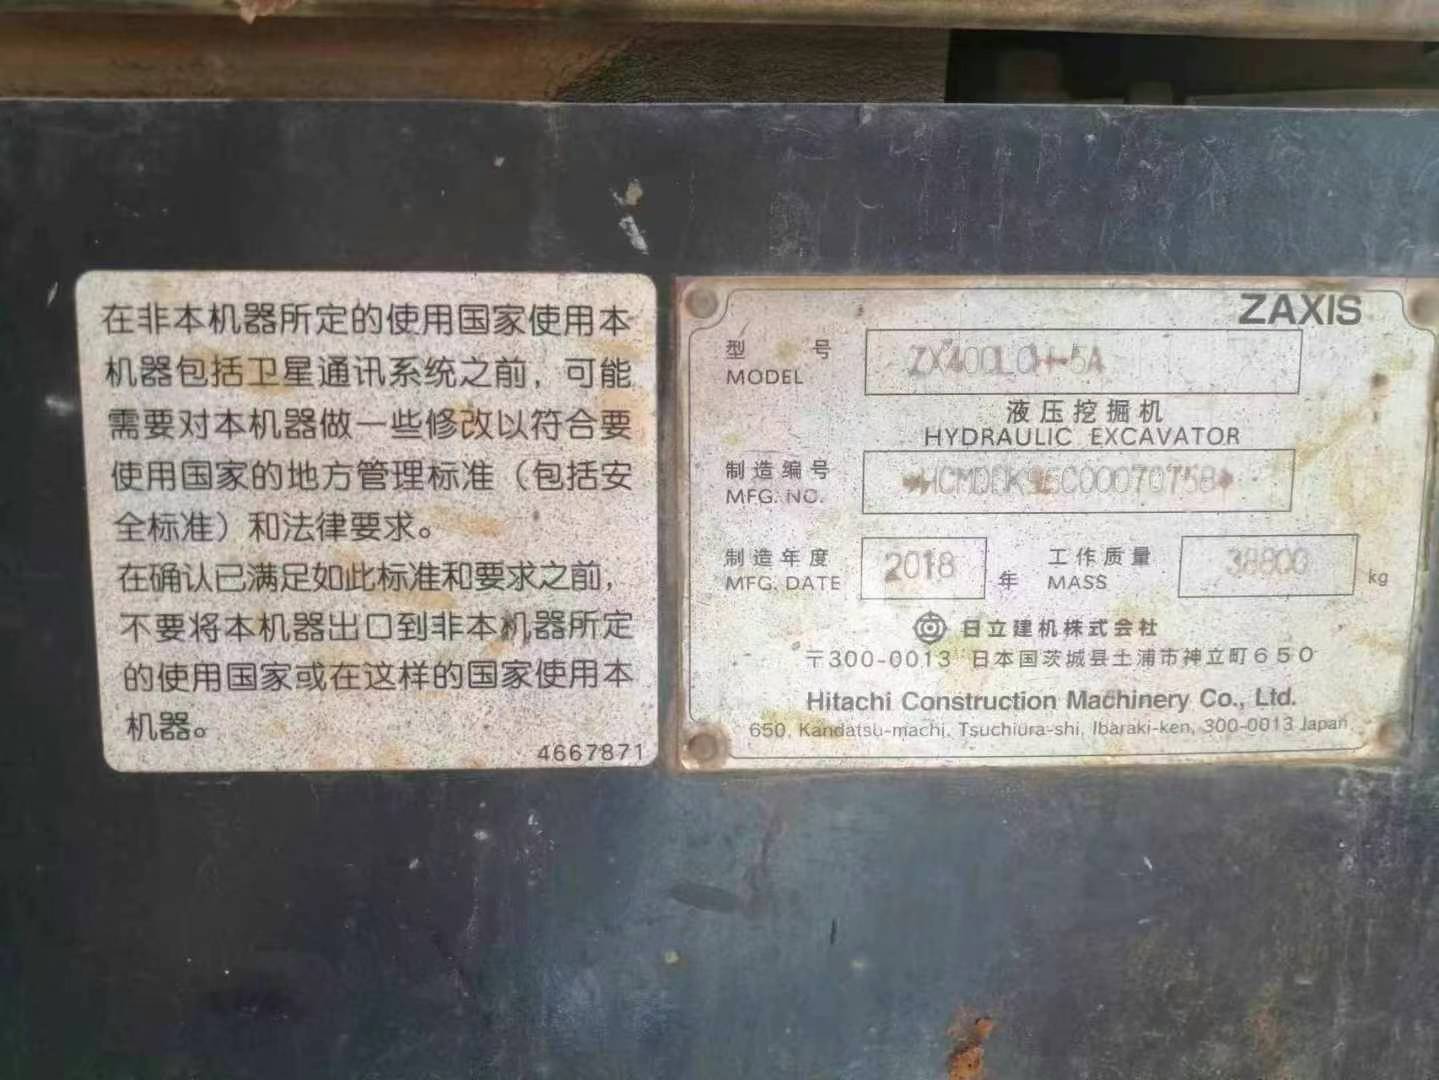 在非本机器所定的使用国家使用本
机器包括卫星通讯系统之前，可能
需要对本机器做一些修改以符合要
使用国家的地方管理标准（包括安
全标准）和法律要求。
在确认已满足如此标准和要求之前，
不要将本机器出口到非本机器所定
的使用国家或在这样的国家使用本
机器。
4667871
ZAXIS
型号 ZX400LCH-5A
MODEL
液压挖掘机
HYDRAULIC EXCAVATOR
制造编号
MFG. NO.
制造年度 2018 年 工作质量 38800 kg
MFG. DATE MASS
日立建机株式会社
〒300-0013 日本国茨城县土浦市神立町650
Hitachi Construction Machinery Co., Ltd.
650, Kandatsu-machi, Tsuchiura-shi, Ibaraki-ken, 300-0013 Japan